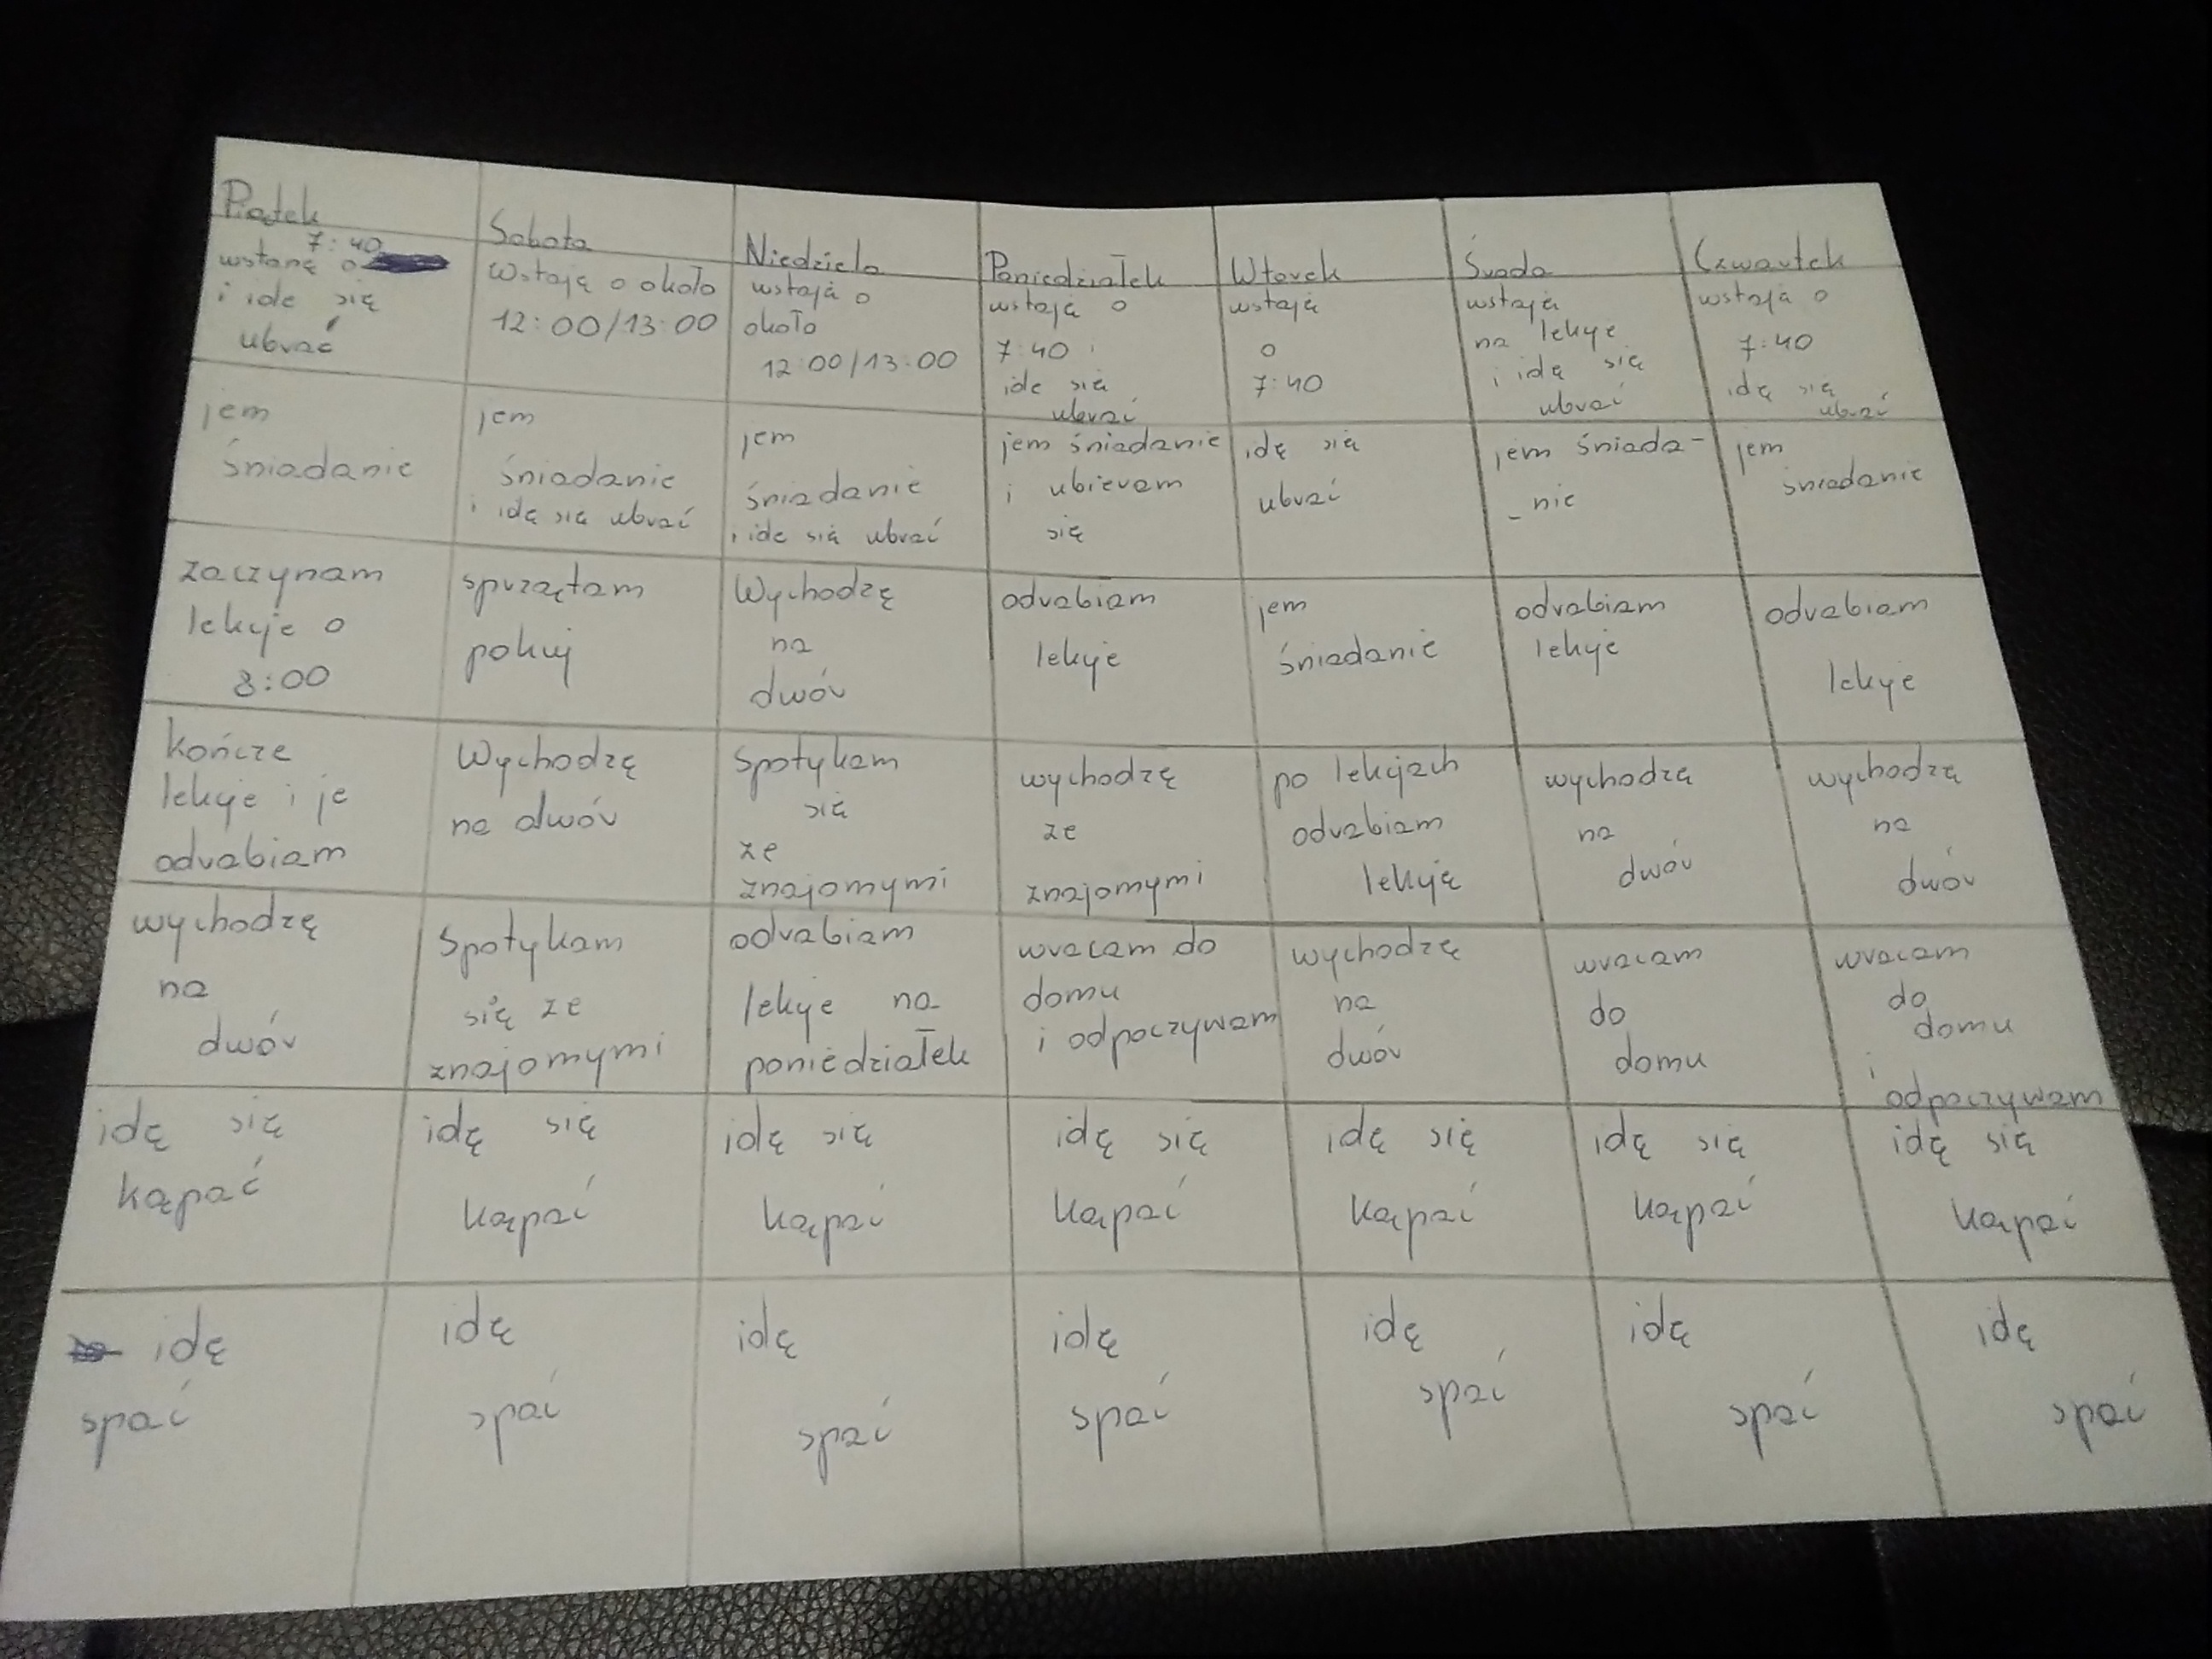 Piątek
7:40
wstanę o
i ide się
ubrać
jem
śniadanie
zaczynam
lekcje o
8:00
kończe
lekcje i je
odrabiam
wychodzę
na
dwór
idę się
kąpać
idę
spać
Sobota
Wstaję o około
12:00/13:00
jem
śniadanie
i idę się ubrać
sprzątam
pokuj
Wychodzę
na dwór
Spotykam
się ze
znajomymi
idę się
kąpać
idę
spać
Niedziela
wstaję o
około
12:00/13:00
jem
śniadanie
i ide się ubrać
Wychodzę
na
dwór
Spotykam
się
ze
znajomymi
odrabiam
lekcje na
poniedziałek
idę się
kąpać
idę
spać
Poniedziałek
wstaję o
7:40 i
ide się
ubrać
jem śniadanie
i ubieram
się
odrabiam
lekcje
wychodzę
ze
znajomymi
wracam do
domu
i odpoczywam
idę się
kąpać
idę
spać
Wtorek
wstaję
o
7:40
idę się
ubrać
jem
śniadanie
po lekcjach
odrabiam
lekcję
wychodzę
na
dwór
idę się
kąpać
idę
spać
Środa
wstaję
na lekcje
i idę się
ubrać
jem śniada-
-nie
odrabiam
lekcje
wychodzę
na
dwór
wracam
do
domu
idę się
kąpać
idę
spać
Czwartek
wstaję o
7:40
idę się
ubrać
jem
śniadanie
odrabiam
lekcje
wychodzę
na
dwór
wracam
do
domu
i
odpoczywam
idę się
kąpać
idę
spać